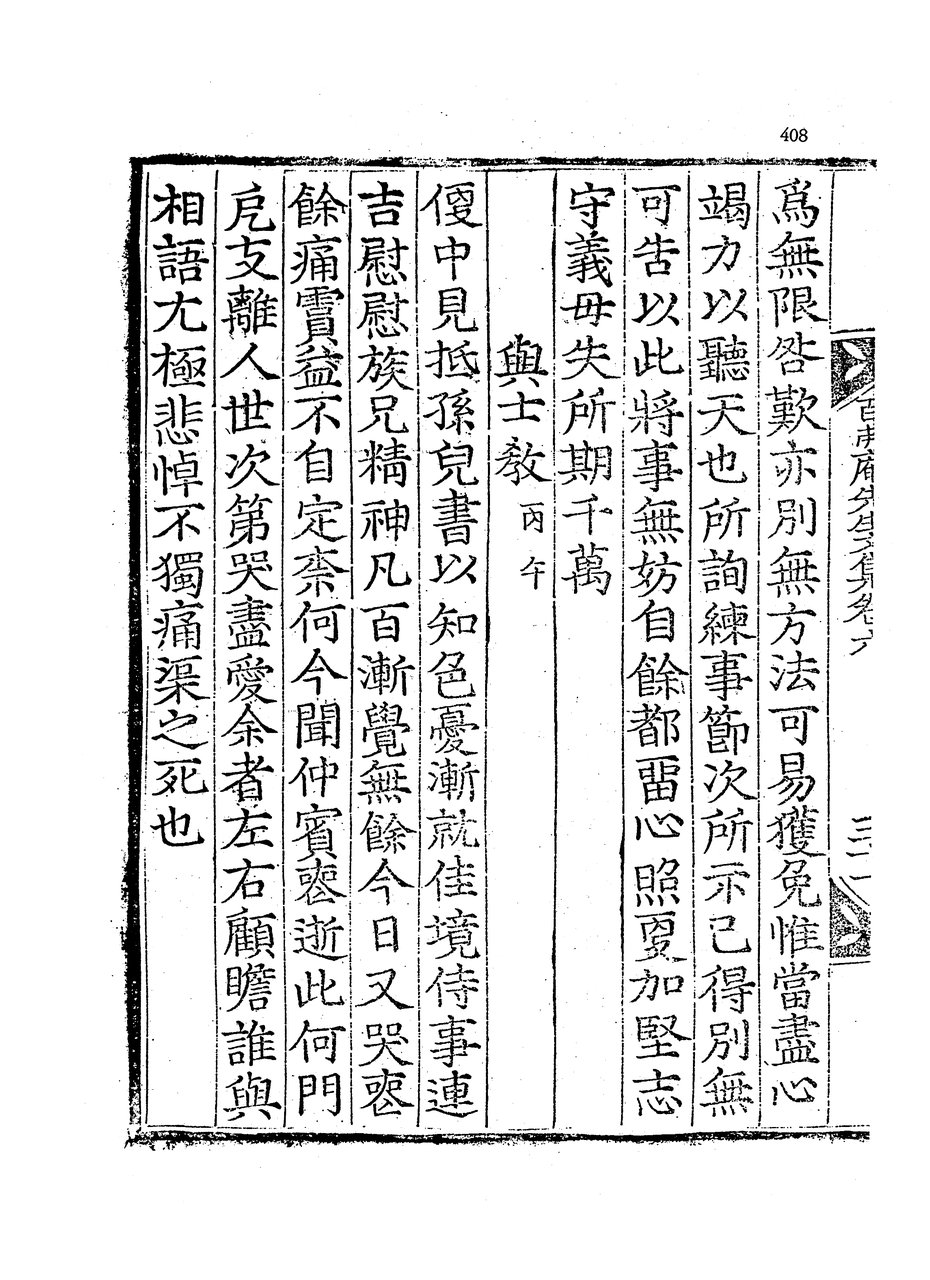 408
爲無限咎歎亦別無方法可易獲免惟當盡心
竭力以聽天也所詢練事節次所示已得別無
可告以此將事無妨自餘都畱心照更加堅志
守義毋失所期千萬
與士教 丙午
便中見抵孫兒書以知色憂漸就佳境侍事連
吉慰慰族兄精神凡百漸覺無餘今日又哭喪
餘痛實益不自定柰何今聞仲賓喪逝此何門
戶支離人世次第哭盡愛余者左右顧瞻誰與
相語尤極悲悼不獨痛渠之死也
先生文集卷六